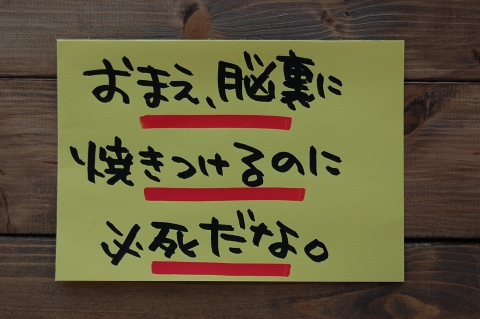 おまえ、脳裏に
焼きつけるのに
必死だな。